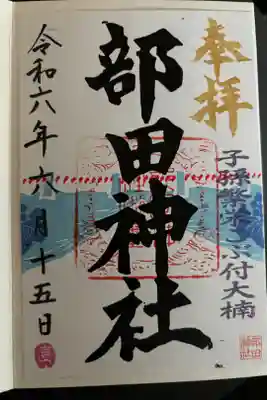 奉拝
子孫繁栄こぶ付大楠
部田神社
令和六年六月十五日